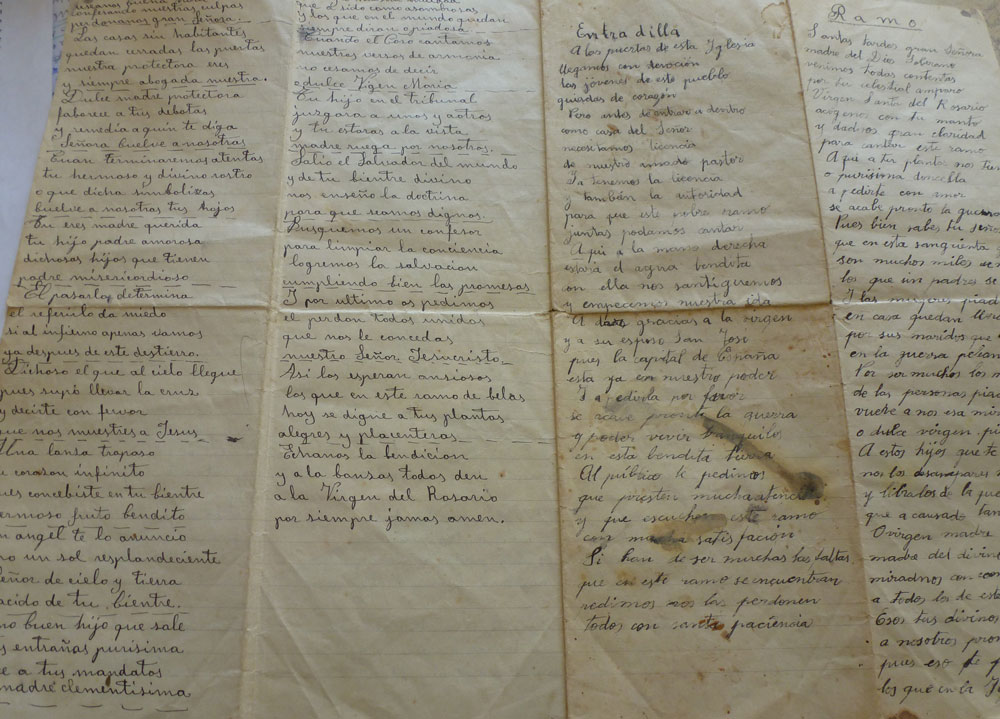 confesando nuestras culpas
perdonanos gran Señora.
Las casas sin habitantes
quedan cerradas las puertas
nuestra protectora eres
y siempre abogada nuestra.
Dulce madre protectora
faborece a tus debotas
y remedia a quin te diga
Señora buelve a nosotras
Euan terminaremos atentas
tu hermoso y divino rostro
o que dicha simbolizas
buelve a nosotras tus hojos
Tu eres madre querida
tu hijo padre amorosa
dichosas hijos que tienen
padre misericordioso
El pasarlo determina
el referirlo da miedo
si al infierno apenas vamos
ya despues de este destierro.
Dichoso el que al cielo llegue
pues supo llevar la cruz
y decirte con fervor
que nos muestres a Jesus
Una lanza traspaso
corazon infinito
ues concebiste en tu bientre
ermoso fruto bendito
n angel te lo anuncio
mo un sol resplandeciente
eñor de cielo y tierra
acido de tu bientre.
mo buen hijo que sale
s entrañas purisima
e a tus mandatos
madre clementisima
que Dido como asombrosas
y los que en el mundo quedan
siempre diran o piadosa
Cuando el Coro cantamos
nuestros versos de armonia
no cesamos de decir
o dulce Vigen Maria
Tu hijo en el tribunal
juzgara a unos y a otros
y tu estaras a la vista
madre ruega por nosotros.
Salio el Salvador del mundo
y de tu bientre divino
nos enseño la doctrina
para que seamos dignos.
Busquemos un confesor
para limpiar la contiencia
logremos la salvacion
cumpliendo bien las promesas
I por ultimo os pedimos
el perdon todos unidas
que nos le concedas
nuestro Señor. Jesucristo.
Asi los esperan ansiosos
los que en este ramo de belas
hoy se digne a tus plantas
alegres y placenteras
Echanos la bendicion
y a la banzas todos den
a la Virgen del Rosario
por siempre jamas amen.
Entradilla
A las puertas de esta Iglesia
llegamos con devoción
las jóvenes de este pueblo
guiadas de coragón
Pero antes de entrar a dentro
como casa del Señor
necesitamos licencia
de nuestro amado pastor
Ya tenemos la licencia
y tambán la utoridad
para que este nobre ramo
juntas podamos cantar
Aqui a la mano derecha
estará el agua bendita
con ella nos santiguemos
y empecemos nuestra ida
A dar gracias a la virgen
y a su esposo San José
pues la capital de España
esta ya en nuestro poder
Y a pedirla por favor
se acave pronto la guerra
y poder vivir tranquilos
en esta bendita tierra
Al público le pedimos
que presten mucha atencion
y que escuchen este ramo
con mucha satisfación
Si han de ser muchas las faltas
que en este ramo se encuentran
pedimos nos las perdonen
todos con santa paciencia
Ramo.
Santas tardes gran Señora
madre del Dios Soberano
venimos todas contentas
por tu celestial amparo
Virgen Santa del Rosario
acigenos con tu manto
y dadnos gran claridad
para cantar este ramo
Aqui a tus plantas nos
o purisima doncella
a pedirte con amor
se acabe pronto la guerra
Pues bien sabes tu seño
que en esta sangrienta
son muchos miles
los que un padres se
Y las mujeres piad
en casa quedan llora
por sus maridos que
en la guerra pelean
Por ser muchos los m
de las personas piad
vuelve a nos esa mis
o dulce virgen pia
A estos hijos que te
no los desanpares
y libralos de la gue
que a causado tan
O virgen madre
madre del divino
miradnos con com
a todos los de este
Esos tus divinos
a nosotros pron
pues eso te p
los que en la I